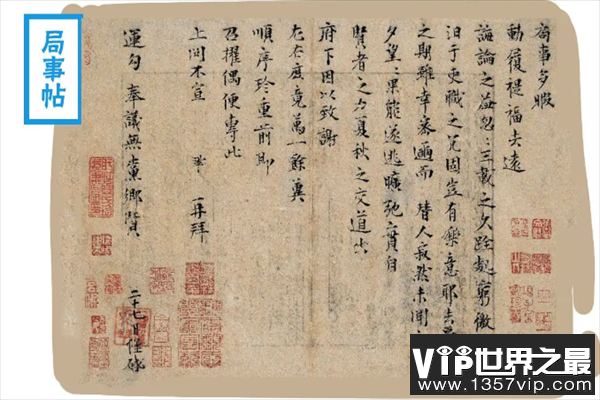 局事帖
局事多暇
動履禔福去遠
誨論之益忽〻三載之久跧處窮徼
汩于吏職之冗固豈有樂意耶去
之期雖幸密邇而 替人寂然未聞
夕望〻果能遂逃曠弛實自
賢者之力夏秋之交道出
府下因以致謝
左右庶竟萬一餘冀
順序珍重前即
召擢偶便專此
上問不宣 鞏 再拜
運勾 奉議無黨鄉賢
二十七日謹啓
VIP世界之最
www.1357vip.com